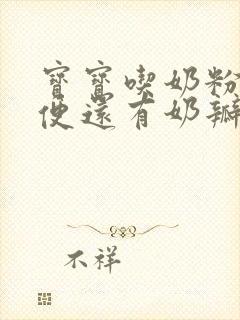 寶寶喫奶粉
便還有奶瓣
不祥